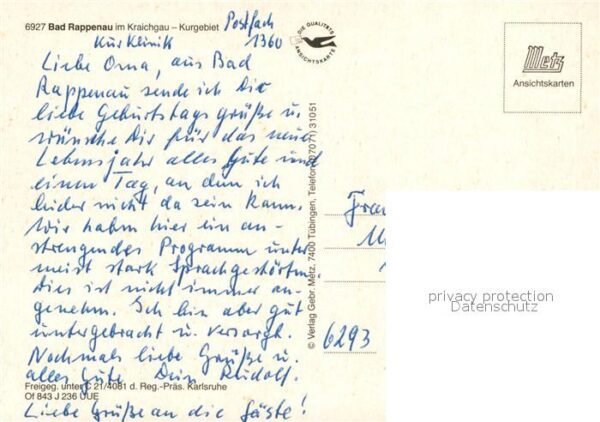 6927 Bad Rappenau im Kraichgau – Kurgebiet
Postfach
1360
Kurklinik
Liebe Oma, aus Bad
Rappenau sende ich Dir
liebe Geburtstagsgrüße u.
wünsche Dir für das neue
Lebensjahr alles Gute und
einen Tag, an dem ich
leider nicht da sein kann.
Wir haben hier ein an-
strengendes Programm unter
meist stark Sprachgestörten,
dies ist nicht immer an-
genehm. Ich bin aber gut
untergebracht u. versorgt.
Nochmals liebe Grüße u.
alles Gute Dein Rudolf.
Freigeg. unter C 21/4081 d. Reg.-Präs. Karlsruhe
Of 843 J 236 UUE
Liebe Grüße an die Gäste!
DIE QUALITÄTS
ANSICHTSKARTE
Metz
Ansichtskarten
© Verlag Gebr. Metz, 7400 Tübingen, Telefon (07071) 31051
6293
privacy protection
Datenschutz